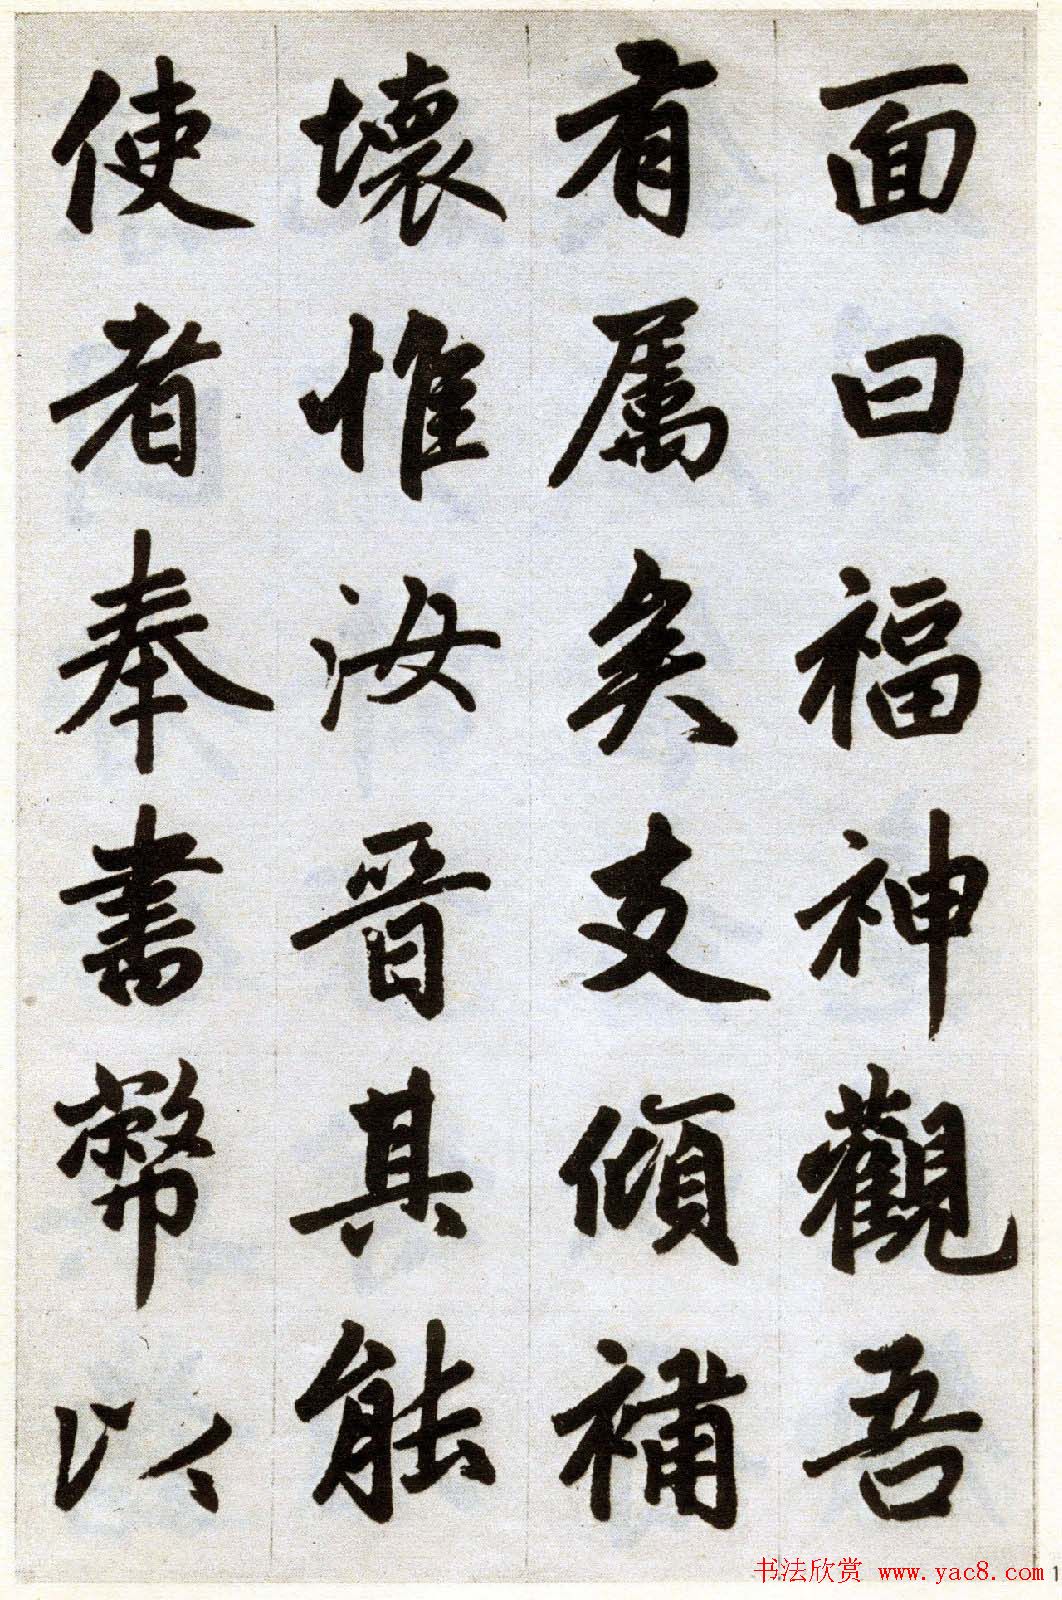 面曰福神觀吾
有属矣支傾補
壞惟汝晉其能
使者奉書幣以
书法欣赏 www.yac8.com
1